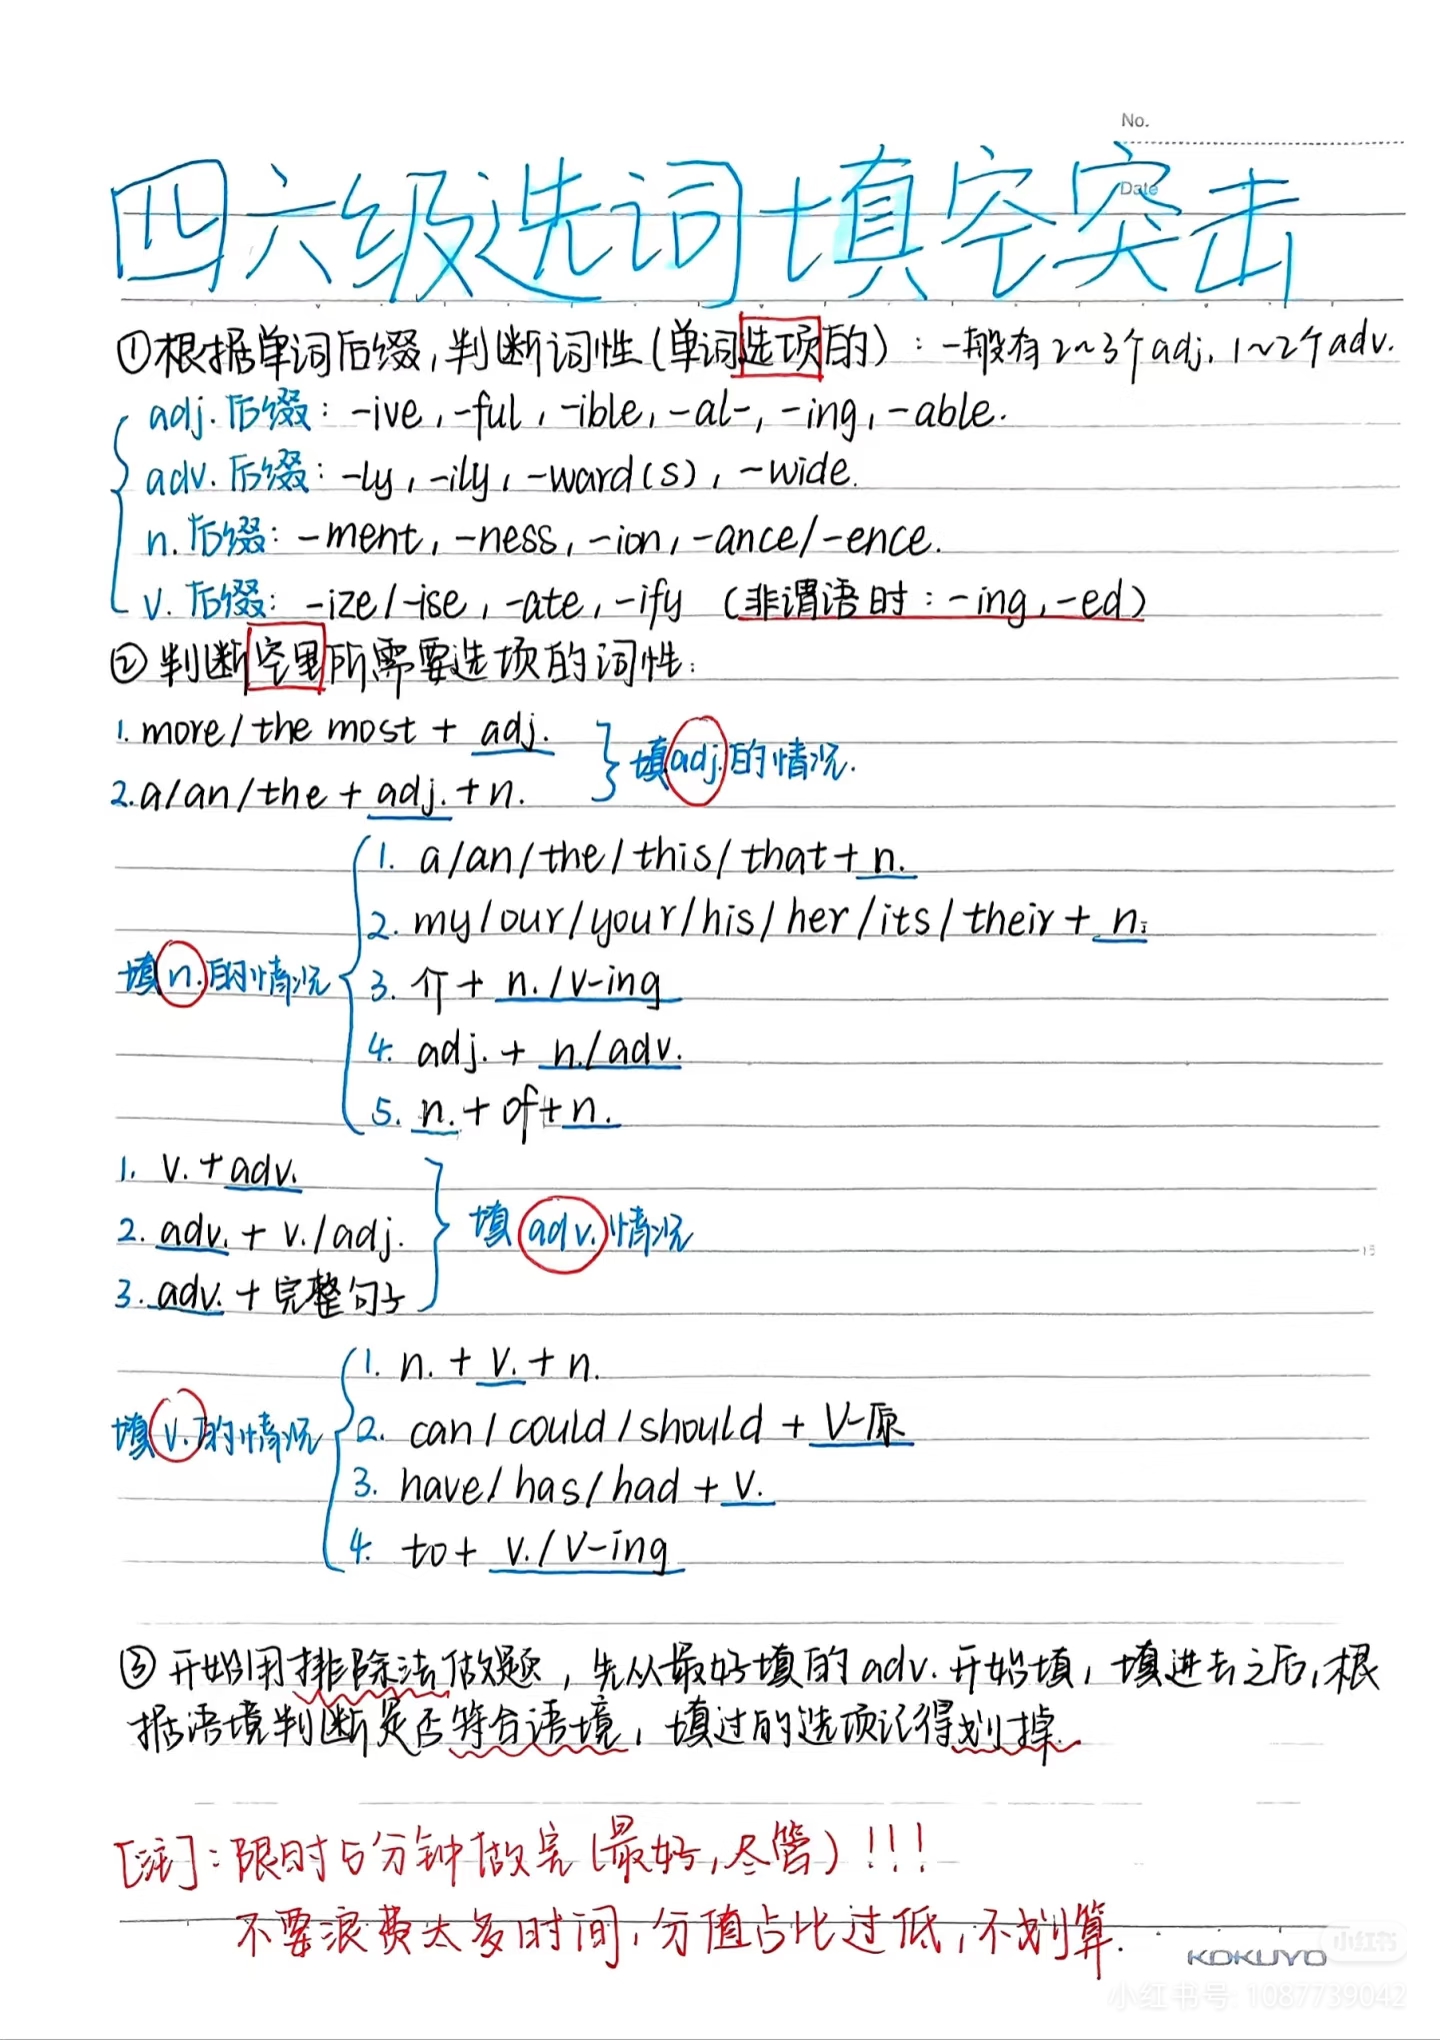 No.
Date
四六级选词填空突击
①根据单词后缀,判断词性(单词选项的):一般有2~3个adj,1~2个adv.
adj.后缀:-ive,-ful,-ible,-al-,-ing,-able.
adv.后缀:-ly,-ily,-ward(s),-wide.
n.后缀:-ment,-ness,-ion,-ance/-ence.
v.后缀:-ize/-ise,-ate,-ify (非谓语时:-ing,-ed)
②判断空里所需要选项的词性:
1. more/the most + adj.
2. a/an/the + adj. + n.
填adj.的情况.
填n.的情况
1. a/an/the/this/that + n.
2. my/our/your/his/her/its/their + n.
3. 介 + n./v-ing
4. adj. + n./adv.
5. n. + of + n.
1. v. + adv.
2. adv. + v./adj.
3. adv. + 完整句子
填adv.情况
填v.的情况
1. n. + v. + n.
2. can/could/should + V-原
3. have/has/had + v.
4. to + v./v-ing
③开始用排除法做题,先从最好填的adv.开始填,填进去之后,根
据语境判断是否符合语境,填过的选项记得划掉.
[注]:限时5分钟做完(最好,尽管)!!!
不要浪费太多时间,分值占比过低,不划算.
KOKUYO
小红书
小红书号: 1087739042